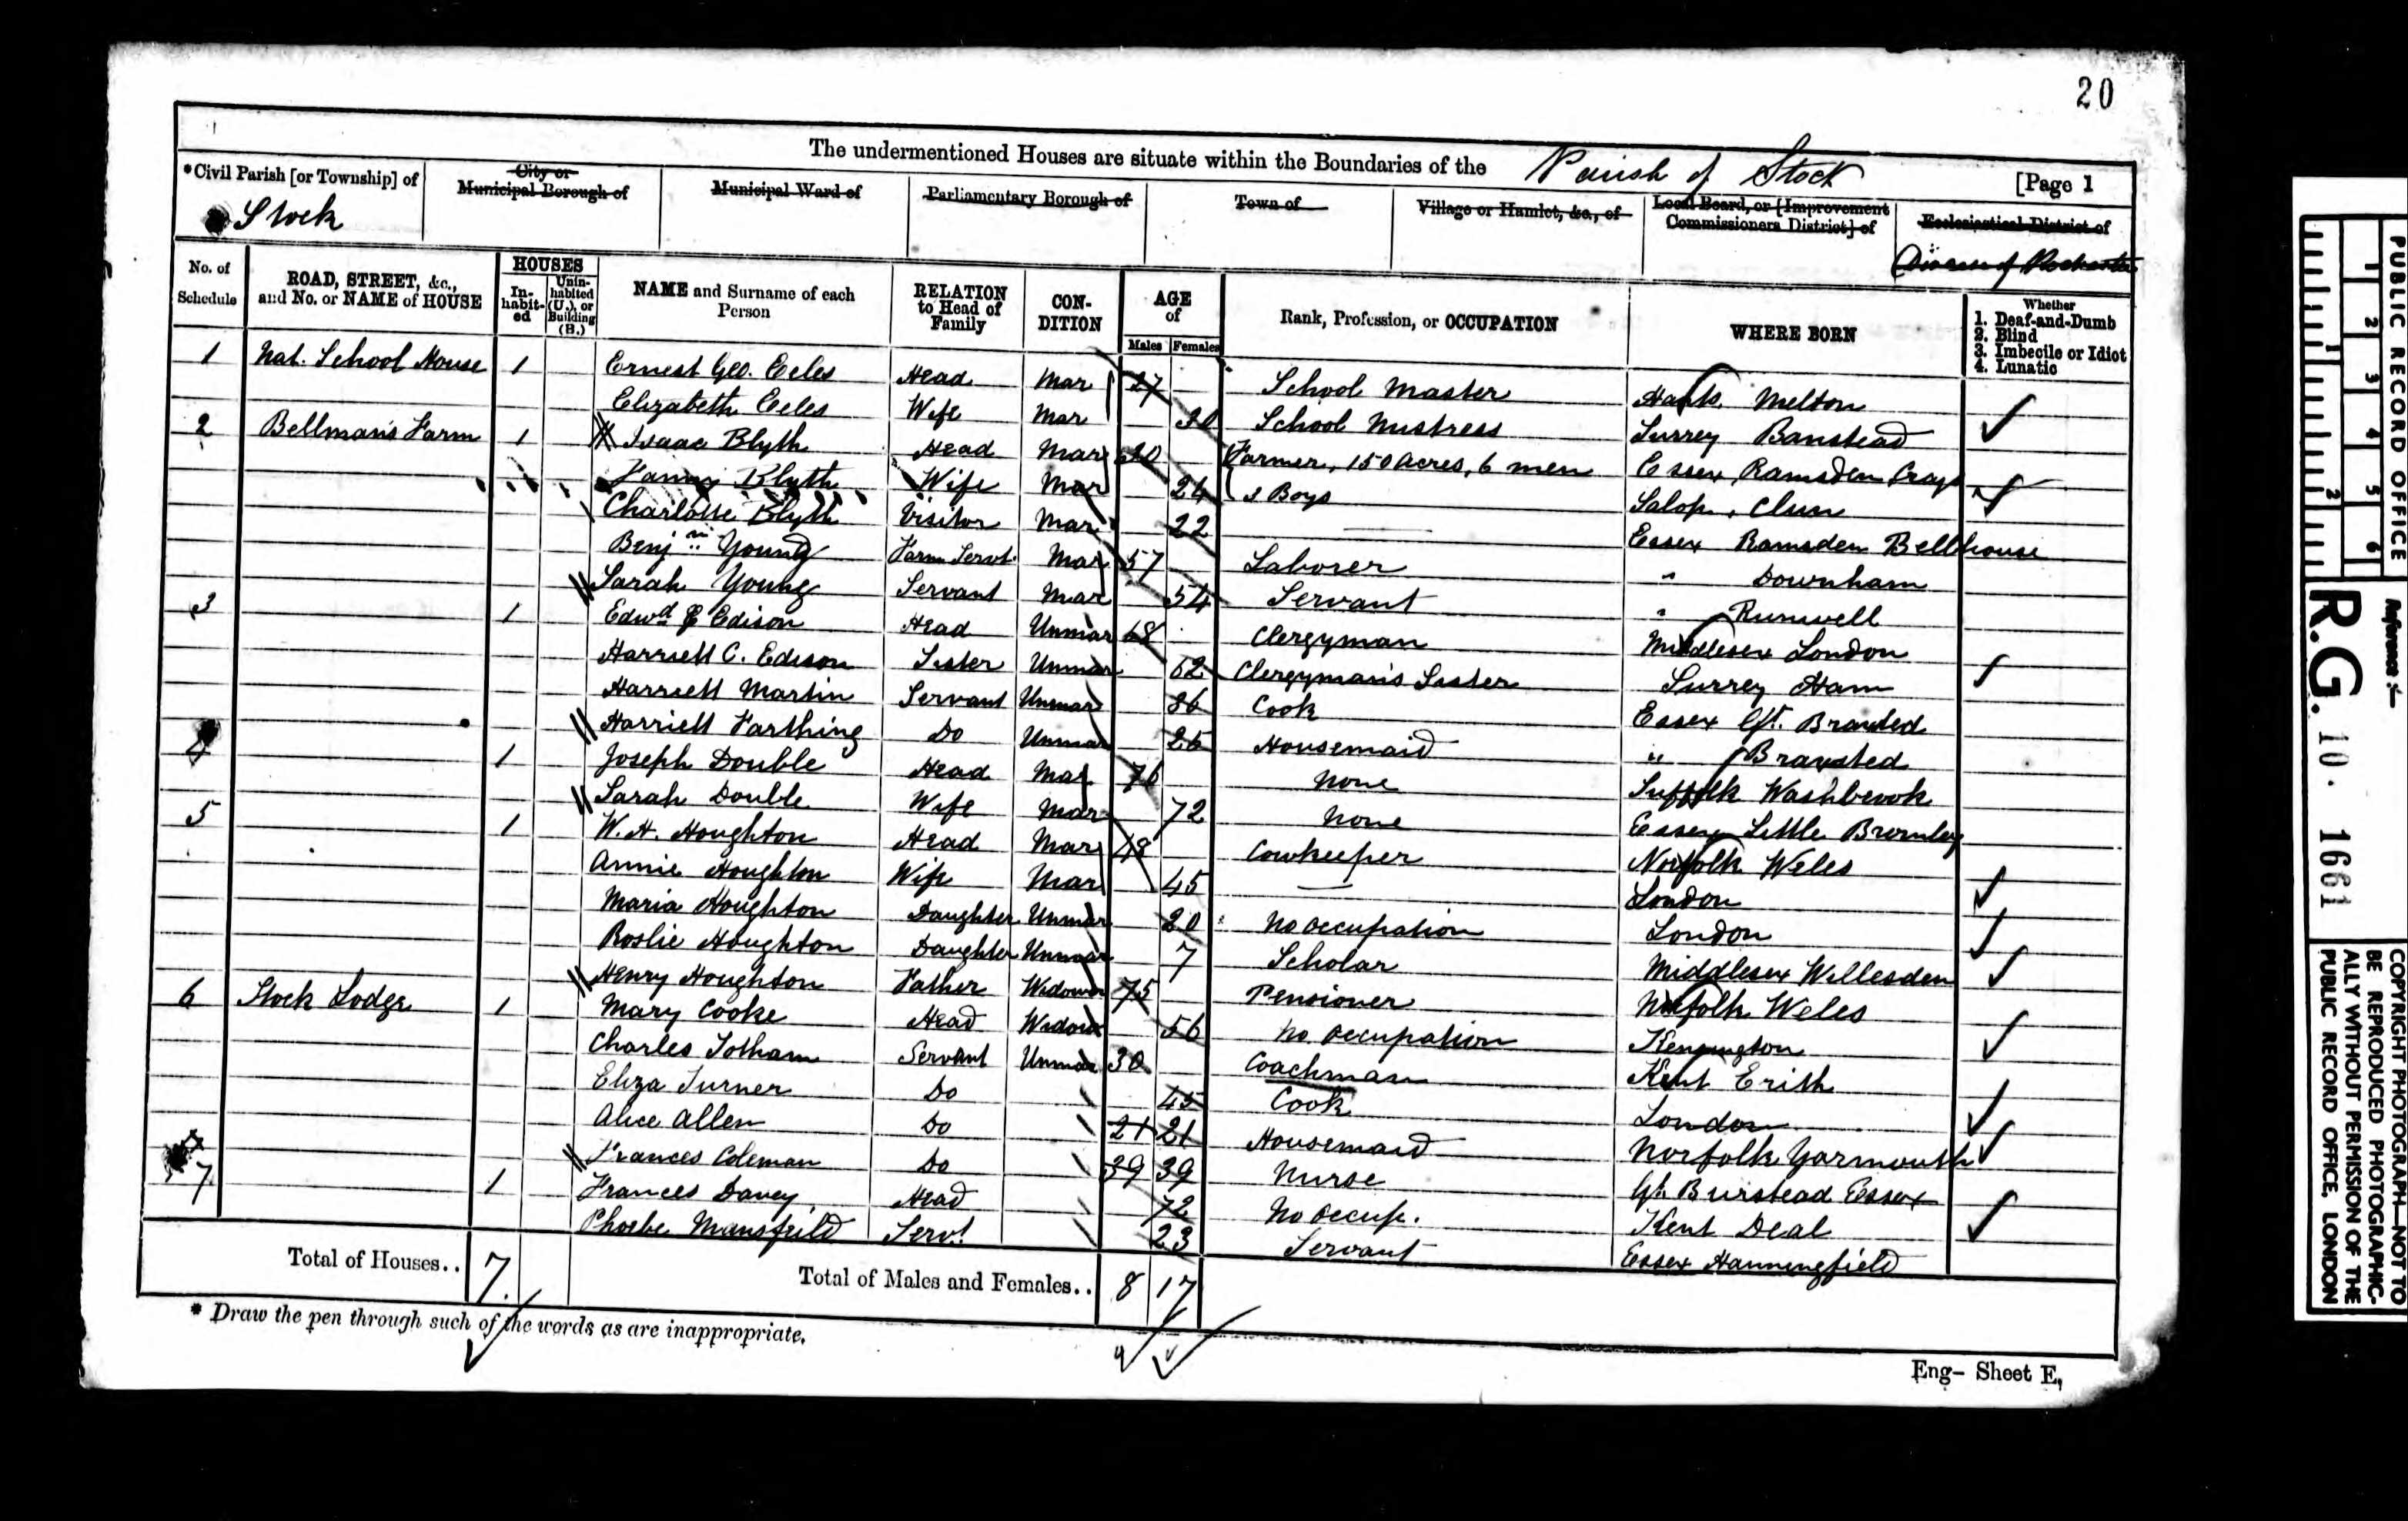 20
The undermentioned Houses are situate within the Boundaries of the Parish of Stock
[Page 1
*Civil Parish [or Township] of
Stock
City or Municipal Borough of
Municipal Ward of
Parliamentary Borough of
Town of
Village or Hamlet, &c., of
Local Board, or [Improvement Commissioners District] of
Ecclesiastical District of
Diocese of Rochester
No. of Schedule
ROAD, STREET, &c., and No. or NAME of HOUSE
HOUSES
In-habit-ed
Unin-habited (U.), or Building (B.)
NAME and Surname of each Person
RELATION to Head of Family
CON-DITION
AGE of
Males Females
Rank, Profession, or OCCUPATION
WHERE BORN
Whether
1. Deaf-and-Dumb
2. Blind
3. Imbecile or Idiot
4. Lunatic
1 Nat. School House 1 Ernest Geo. Eeles Head Mar 27 School Master Hants Melton
Elizabeth Eeles Wife Mar 30 School Mistress Surrey Banstead
2 Bellman's Farm 1 Isaac Blyth Head Mar 30 Farmer, 150 Acres, 6 men Essex Ramsden Crays
Fanny Blyth Wife Mar 24 3 Boys Salop, Clun
Charlotte Blyth Visitor Mar 22 Essex Ramsden Bellhouse
Benjn Young Farm Servt. Mar 57 Laborer " Downham
Sarah Young Servant Mar 54 Servant " Runwell
3 1 Edwd Edison Head Unmar 68 Clergyman Middlesex London
Harriett C. Edison Sister Unmar 62 Clergyman's Sister Surrey Ham
Harriett Martin Servant Unmar 36 Cook Essex Gt. Braxted
Harriett Farthing Do Unmar 25 Housemaid " Braxted
4 1 Joseph Double Head Mar 76 None Suffolk Washbrook
Sarah Double Wife Mar 72 None Essex Little Bromley
5 1 W. H. Houghton Head Mar 48 Cowkeeper Norfolk Weles
Annie Houghton Wife Mar 45 London
Maria Houghton Daughter Unmar 20 No occupation London
Roslie Houghton Daughter Unmar 7 Scholar Middlesex Willesden
Henry Houghton Father Widower 75 Pensioner Norfolk Weles
6 Stock Lodge 1 Mary Cooke Head Widow 56 No occupation Kensington
Charles Totham Servant Unmar 30 Coachman Kent Erith
Eliza Turner Do 45 Cook London
Alice Allen Do 21 21 Housemaid Norfolk Yarmouth
Frances Coleman Do 39 39 Nurse Gt. Burstead Essex
7 1 Frances Davey Head 72 No occup. Kent Deal
Phoebe Mansfield Servt 23 Servant Essex Hanningfield
Total of Houses.. 7. Total of Males and Females.. 8 17
* Draw the pen through such of the words as are inappropriate.
Eng- Sheet E,
PUBLIC RECORD OFFICE
1 2 3 4 5 6
1 2
Reference :-
R.G. 10. 1661
COPYRIGHT PHOTOGRAPH—NOT TO
BE REPRODUCED PHOTOGRAPHIC-
ALLY WITHOUT PERMISSION OF THE
PUBLIC RECORD OFFICE, LONDON